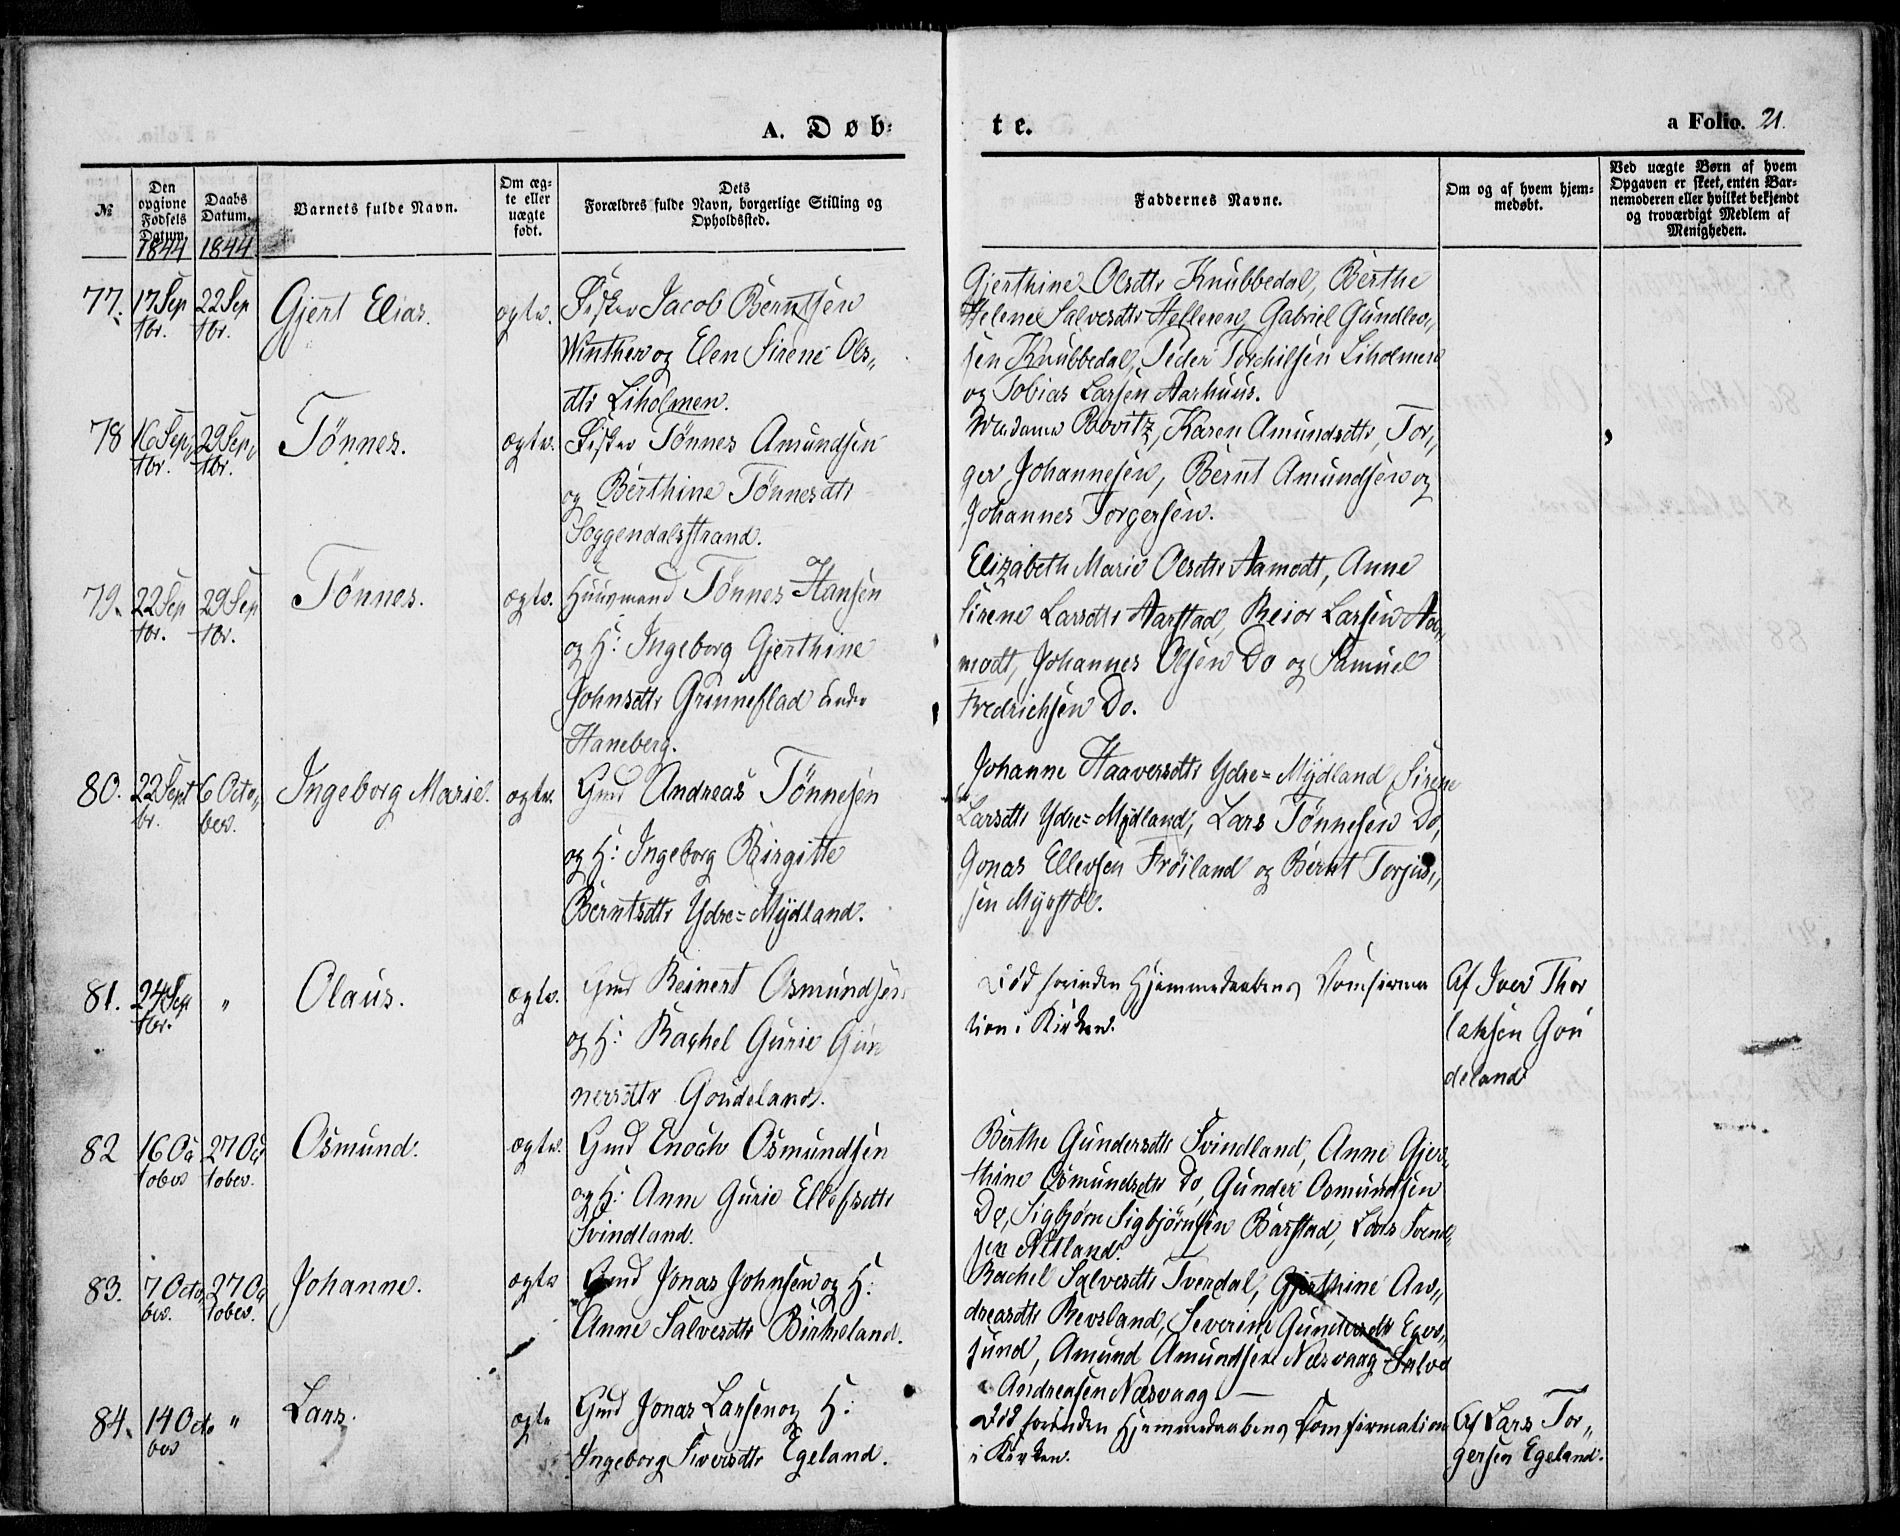 A. Døb-
te.
a Folio. 21.
№
Den opgivne Fødsels Datum.
Daabs Datum.
Barnets fulde Navn.
Om ægte eller uægte født.
Dets Forældres fulde Navn, borgerlige Stilling og Opholdssted.
Faddernes Navne.
Om og af hvem hjemmedøbt.
Ved uægte Børn af hvem Opgaven er skeet, enten Barnemoderen eller hvilket bekjendt og troværdigt Medlem af Menigheden.
1844 1844
77. 17 Sep tbr. 22 Sep tbr. Gjert Elias. ægte.
Fisker Jacob Berntsen
Winther og Elen Sirene Ols„
dtr Liholmen.
Gjerthine Olsdtr Knubbedal, Berthe
Helene Salvesdtr Helleren, Gabriel Gundlev„
sen Knubbedal, Peder Torchilsen Liholmen
og Tobias Larsen Aarhuus.
78 16 Sep„ tbr. 29 Sep„ tbr. Tönnes. ægte.
Fisker Tönnes Amundsen
og Berthine Tönnesdtr
Soggendalsstrand.
Madame Karen Amundsdtr, Tor„
ger Johannesen, Bernt Amundsen og
Johannes Torgersen.
79. 22 Sep tbr. 29 Sep tbr. Tönnes. ægte.
Huusmand Tönnes Hansen
og H: Ingeborg Gjerthine
Johnsdtr Grönneflad under
Haneberg.
Elizabeth Marie Olsdtr Aamodt, Anne
Sirene Larsdtr Aarstad, Reior Larsen Aa„
modt, Johannes Olsen Do og Samuel
Fredrichsen Do.
80. 22 Sept br. 6 Octo„ ber. Ingeborg Marie. ægte.
Gmd Andreas Tönnesen
og H: Ingeborg Birgitte
Berntsdtr Ydre=Mydland.
Johanne Haaversdtr Ydre=Mydland, Sirene
Larsdtr Ydre=Mydland, Lars Tönnesen Do,
Jonas Ellevsen Fröiland og Bernt Torjus„
sen Mysstøl.
81. 24 Sep tbr. „ Olaus. ægte.
Gmd Reinert Osmundsen
og H: Rachel Gurie Gun
nersdtr Goudeland.
Död forinden Hjemmedaabens Comfirma
tion i Kirken.
Af Iver Thor
laksen Gou
deland
82 16 Oc tober 27 Oc tober. Osmund. ægte.
Gmd Enoch Osmundsen
og H: Anne Gurie Ellefsdtr
Svindland.
Berthe Gundersdtr Svindland, Anne Gjer„
thine Osmundsdtr Do, Gunder Osmundsen
Do, Sigbjørn Sigbjørnsen Barstad, Lars Svend„
sen Netland.
83. 7 Octo„ ber. 27 Oc tober. Johanne. ægte
Gmd Jonas Johnsen og H:
Anne Salvesdtr Birkeland.
Rachel Salvesdtr Tverdal, Gjerthine An„
dreasdtr Revsland, Severine Gundersdtr Eger„
sund, Amund Amundsen Næsvaag Salve
Andreasen Næsvaag —
84. 14 Octo ber „ Lars. ægte
Gmd Jonas Larsen og H:
Ingeborg Siversdtr Egeland.
Död forinden Hjemmedaabens Comfirmation
i Kirken.
Af Lars Tor„
gersen Egeland.